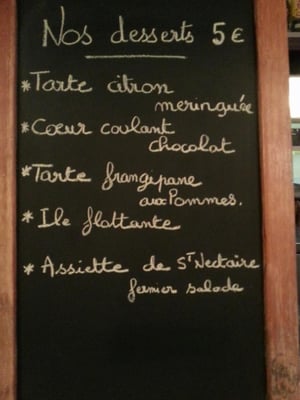 Nos desserts 5€
*Tarte citron
meringuée
*Cœur coulant
chocolat
*Tarte frangipane
aux Pommes.
*Ile flottante
*Assiette de ST Nectaire
fermier salade